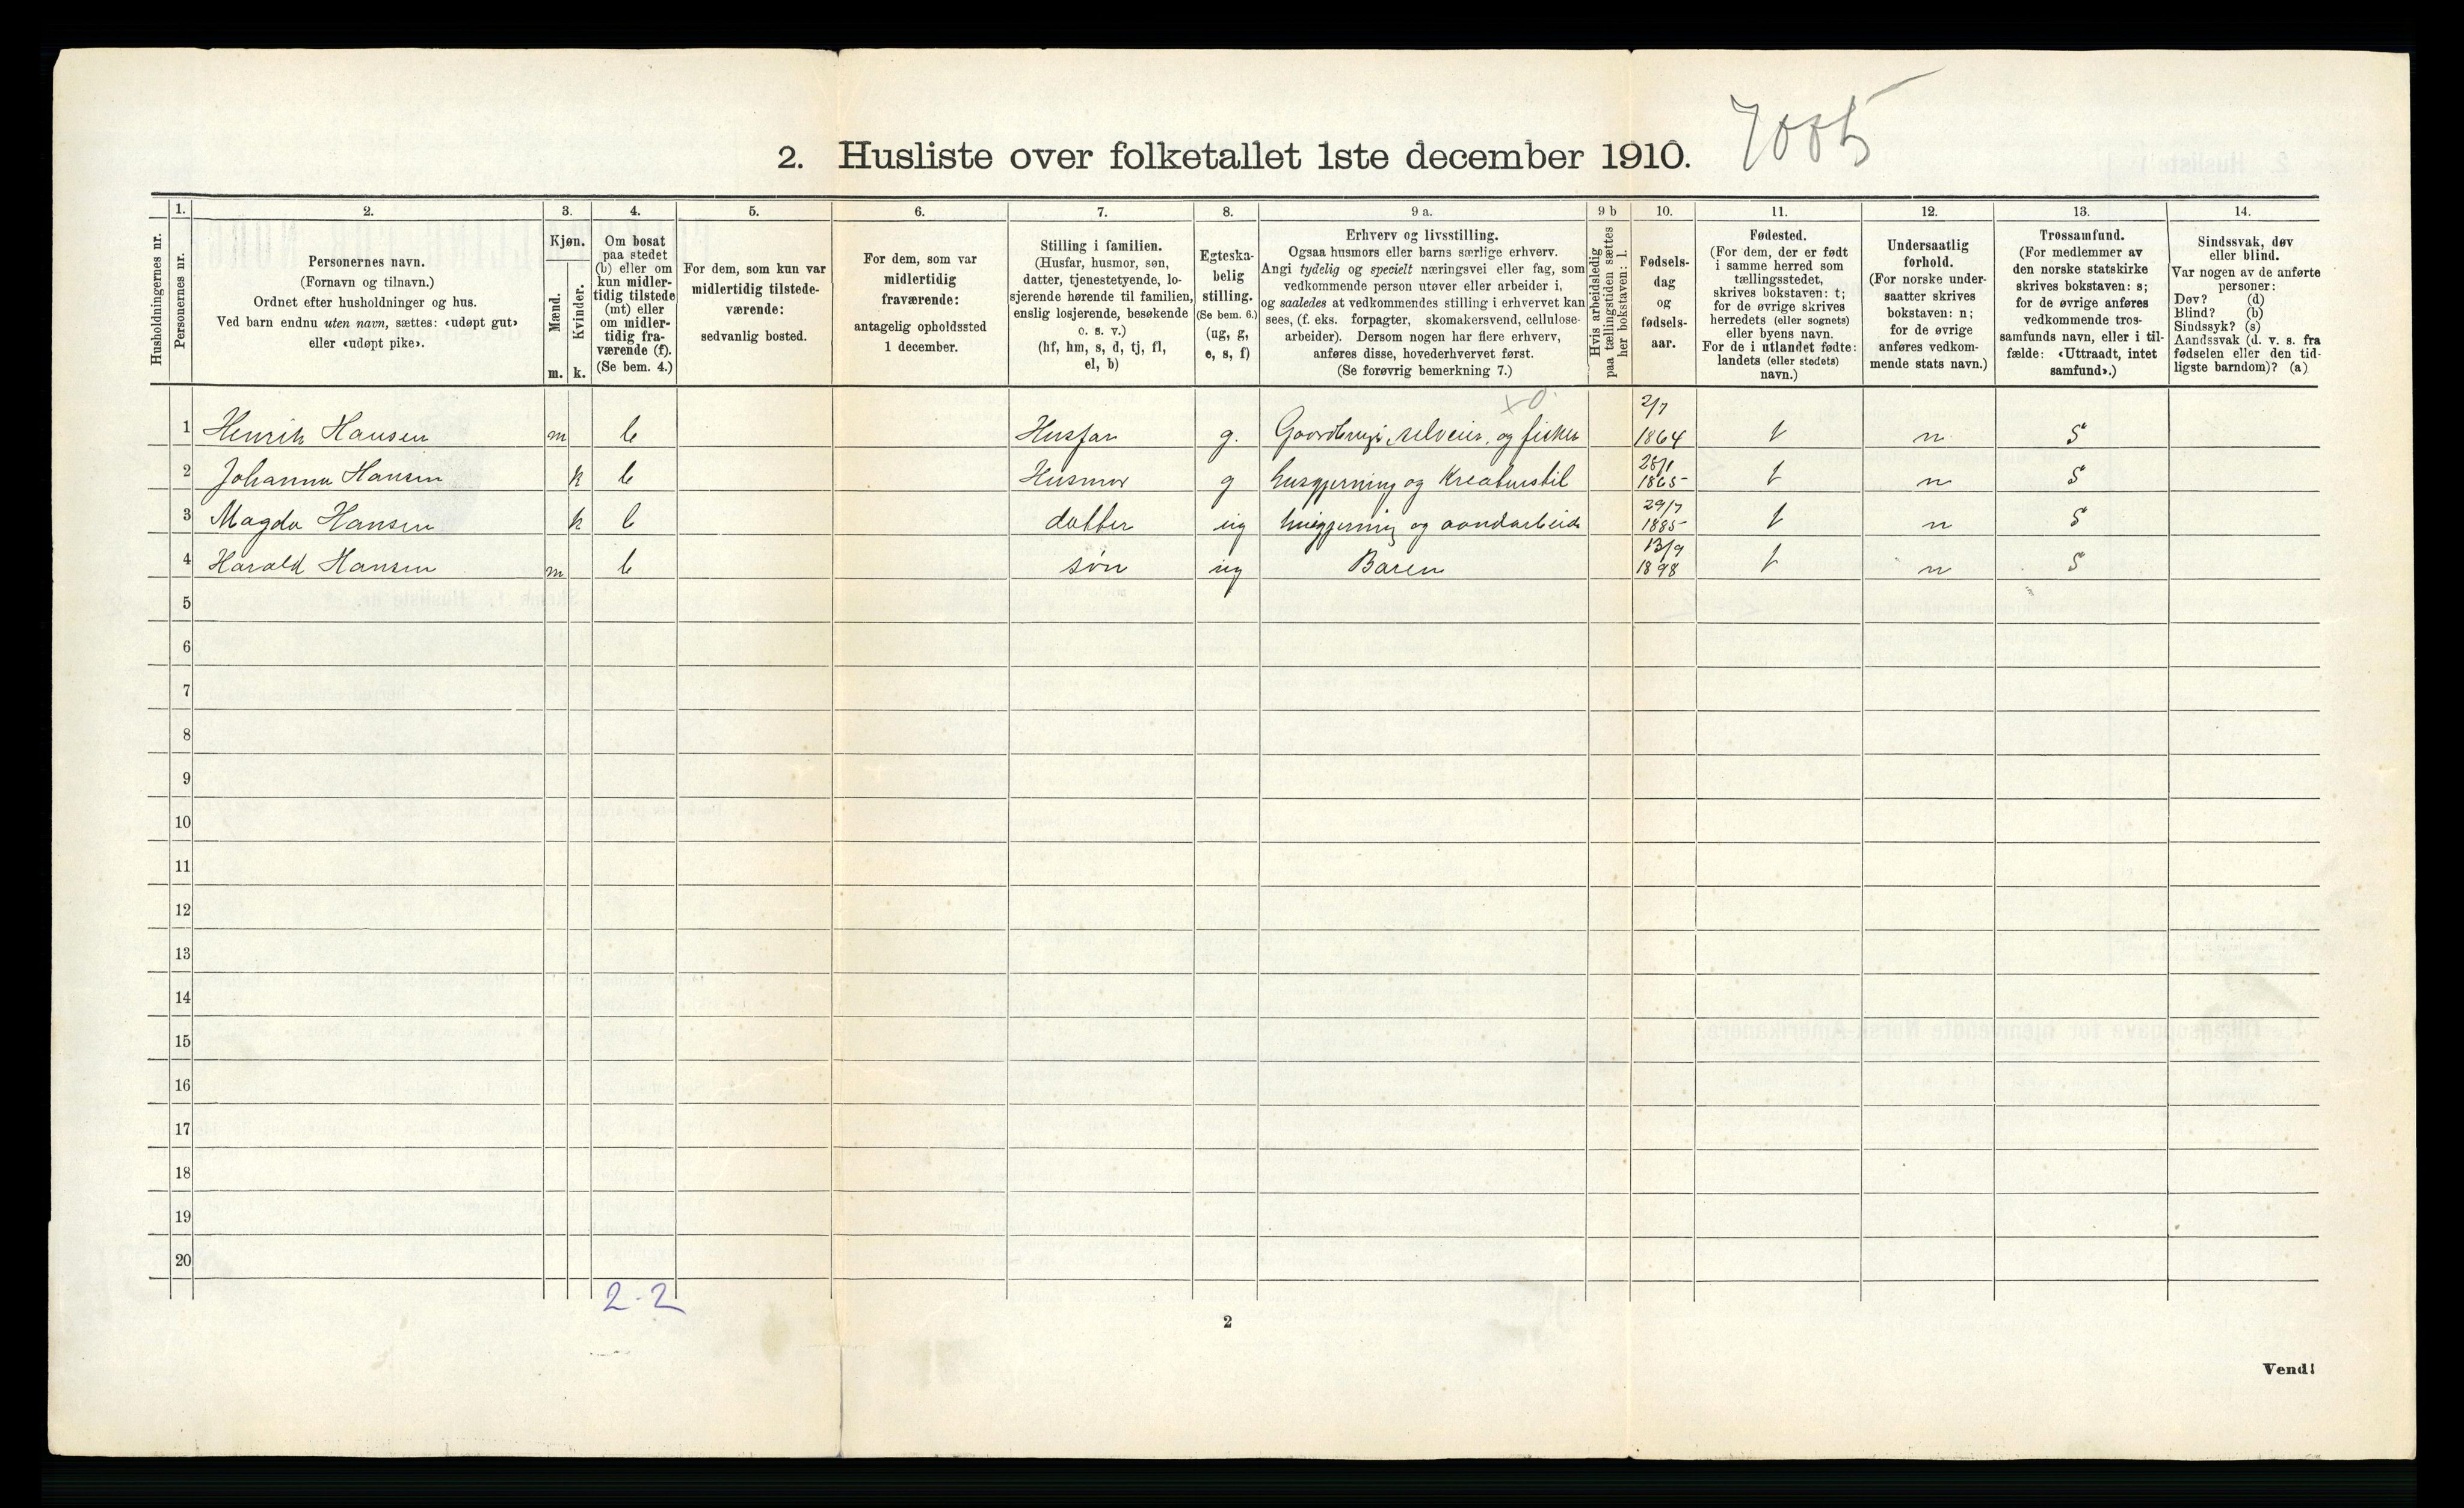 2. Husliste over folketallet 1ste december 1910.
Husholdningernes nr.
1.
Personernes nr.
2.
Personernes navn.
(Fornavn og tilnavn.)
Ordnet efter husholdninger og hus.
Ved barn endnu uten navn, sættes: «udøpt gut»
eller «udøpt pike».
3.
Kjøn.
Mænd.
m.
Kvinder.
k.
4.
Om bosat
paa stedet
(b) eller om
kun midler-
tidig tilstede
(mt) eller
om midler-
tidig fra-
værende (f).
(Se bem. 4.)
5.
For dem, som kun var
midlertidig tilstede-
værende:
sedvanlig bosted.
6.
For dem, som var
midlertidig
fraværende:
antagelig opholdssted
1 december.
7.
Stilling i familien.
(Husfar, husmor, søn,
datter, tjenestetyende, lo-
sjerende hørende til familien,
enslig losjerende, besøkende
o. s. v.)
(hf, hm, s, d, tj, fl,
el, b)
8.
Egteska-
belig
stilling.
(Se bem. 6.)
(ug, g,
e, s, f)
9 a.
Erhverv og livsstilling.
Ogsaa husmors eller barns særlige erhverv.
Angi tydelig og specielt næringsvei eller fag, som
vedkommende person utøver eller arbeider i,
og saaledes at vedkommendes stilling i erhvervet kan
sees, (f. eks. forpagter, skomakersvend, cellulose-
arbeider). Dersom nogen har flere erhverv,
anføres disse, hovederhvervet først.
(Se forøvrig bemerkning 7.)
9 b
Hvis arbeidsledig
paa tællingstiden sættes
her bokstaven: l.
10.
Fødsels-
dag
og
fødsels-
aar.
11.
Fødested.
(For dem, der er født
i samme herred som
tællingsstedet,
skrives bokstaven: t;
for de øvrige skrives
herredets (eller sognets)
eller byens navn.
For de i utlandet fødte:
landets (eller stedets)
navn.)
12.
Undersaatlig
forhold.
(For norske under-
saatter skrives
bokstaven: n;
for de øvrige
anføres vedkom-
mende stats navn.)
13.
Trossamfund.
(For medlemmer av
den norske statskirke
skrives bokstaven: s;
for de øvrige anføres
vedkommende tros-
samfunds navn, eller i til-
fælde: «Uttraadt, intet
samfund».)
14.
Sindssvak, døv
eller blind.
Var nogen av de anførte
personer:
Døv? (d)
Blind? (b)
Sindssyk? (s)
Aandssvak (d. v. s. fra
fødselen eller den tid-
ligste barndom)? (a)
1 Henrik Hansen m b Husfar g. Gaardbruger, selveier, og fisker 2/7 1864 t n S
2 Johanna Hansen k b Husmor g husgjerning og Kreaturstil 28/1 1865 t n S
3 Magda Hansen k b datter ug husgjerning og aandarbeide 29/7 1885 t n S
4 Harald Hansen m b søn ug Baren 13/9 1898 t n S
5
6
7
8
9
10
11
12
13
14
15
16
17
18
19
20
2-2
2
Vend!